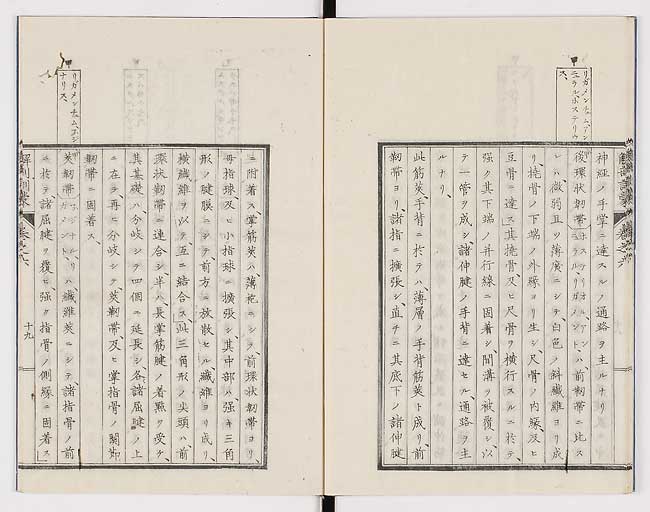 神経ノ手掌ニ達スルノ通路ヲ生ルナリ
後環状靱帯ハ前靱帯ニ比ス
レハ微弱且ツ薄広ニシテ、白色ノ斜繊維ヨリ成
リ、撓骨ノ下端ノ外縁ヨリ生シ尺骨ノ内縁及ヒ
豆骨ニ達ス其撓骨及ヒ尺骨ヲ横行スルニ於テ、
強ク其下端ノ并行線ニ固着シ間溝ヲ被覆シ以
テ一管ヲ成シ、諸伸腱ノ手背ニ達セル、通路ヲ生
ルナリ、
此筋莢手背ニ於テハ、薄層ノ手背筋莢ト成リ、前
靱帯ヨリ、諸指ニ擴張シ、直チニ其底下ノ諸伸腱
ニ附着ス掌筋莢ハ薄ニシテ前環状靱帯ヨリ、
拇指球及ヒ小指球ニ擴張シ其中部ハ強キ三角
形ノ腱膜ニシテ、前方ニ放散セル、繊維ヨリ成リ、
横繊維ヲ以テ互ニ結合ス、此三角形ノ尖頭ハ、前
環状靱帯ニ連合シ半ハ、長掌筋腱ノ着點ヲ受ケ、
其基礎ハ、分岐シテ四個ニ延長シ、各諸屈腱ノ上
ニ在テ再ヒ分岐シテ、莢靱帯及ヒ掌指骨ノ關節
靱帯ニ固着ス、
莢靱帯ハ繊維莢ニシテ諸指骨ノ前
ニ於テ諸屈腱ヲ覆ヒ強ク指骨ノ側縁ニ固着ス
リガメンチュム、
ナリス、
十九